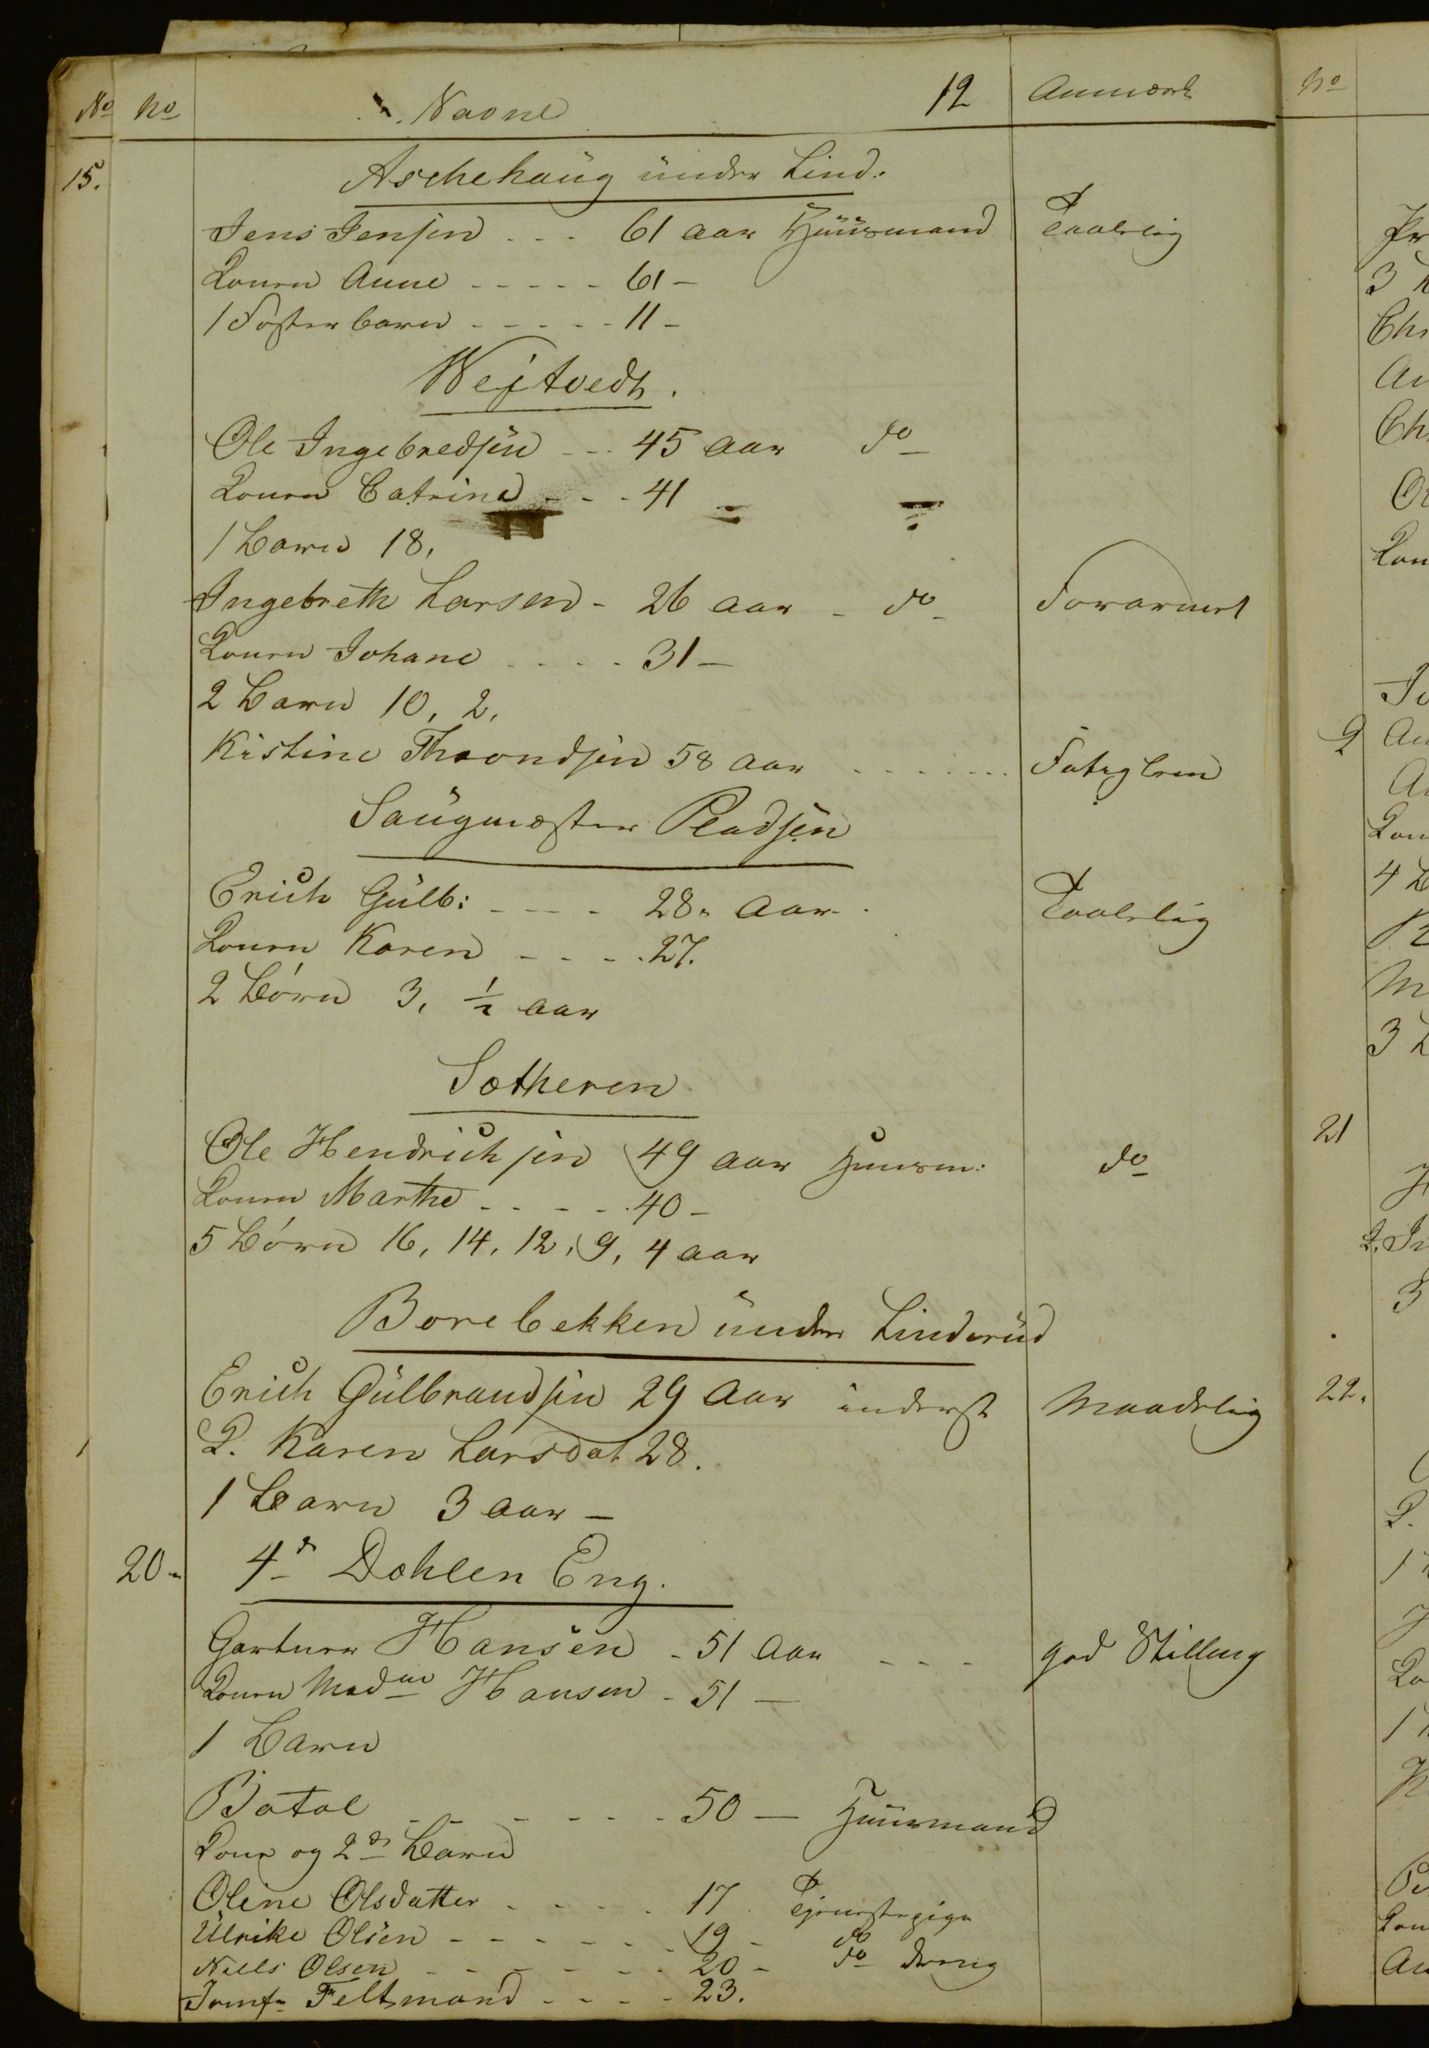 No No Navne 12 Anmærk
15. Aschehaüg ünder Lind:
Jens Jensen - - - 61 aar Hüüsmand Taalelig
Konen Anne - - - - - 61 -
1 Fosterbarn - - - - - 11 -
Wejtvedt.
Ole Ingebredsen - - - 45 aar do
Konen Catrine - - - 41 -
1 Barn 18,
Ingebreth Larsen - 26 aar - do - Forarmet
Konen Johane - - - - 31 -
2 Barn 10, 2,
Kistine Throndsen 58 aar - - - - - - -
Saügmester Pladsen
Erich Gülb: - - - - 28 " Aar - Taalelig
Konen Karen - - - - 27.
2 Børn 3, ½ aar
Sætheren
Ole Hendrichsen 49 aar Huusm: do
Konen Marthe - - - - - 40 -
5 Børn 16, 14, 12, 9, 4 aar
Borebekken ünder Linderüd
Erich Gülbrandsen 29 Aar inderst Maadelig
K. Karen Larsdat 28.
1 Barn 3 aar -
20 - 4de Dahlen Eng.
Gartner Hansen - 51 Aar - - - god Stilling
Konen Madme Hansen - 51 -
1 Barn
Batol - - - - - - - 50 - Hüüsmand
Kone og 2de Barn
Oline Olsdatter - - - - - 17 Tjenestepige
Ulrike Olsen - - - - - - - 19 - do
Niels Olsen - - - - - - - 20 - do dreng
Jomfr Feltmand - - - - 23.
No
3
2
4
3
21
3
22.